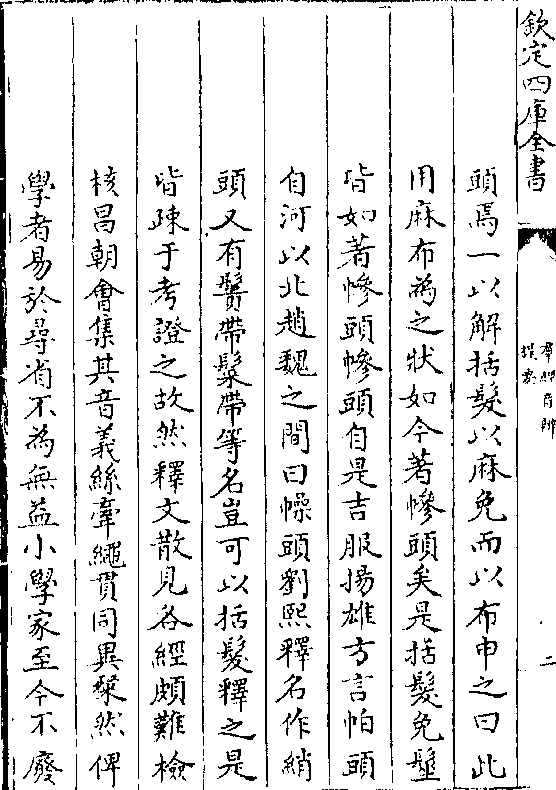 欽定四庫全書
羣經音辨
提要
二
頭焉一以解括髮以麻免而以布申之曰此
用麻布為之狀如今著幓頭矣是括髮免髽
皆如著幓頭幓頭自是吉服揚雄方言帕頭
自河以北趙魏之間曰幧頭劉熙釋名作綃
頭又有鬢帶髼帶等名豈可以括髮釋之是
皆疎于考證之故然釋文散見各經頗難檢
核昌朝會集其音義絲牽繩貫同異粲然俾
學者易於尋省不為無益小學家至今不廢